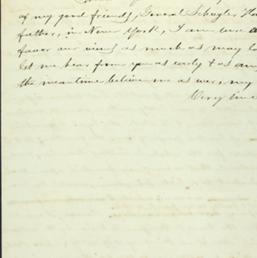 of my good friends, General Schuyler, Ha
father, in New York, I am
favor our views as much as may
let me hear from you as early & as
the mean time believe me as ever, my
Very